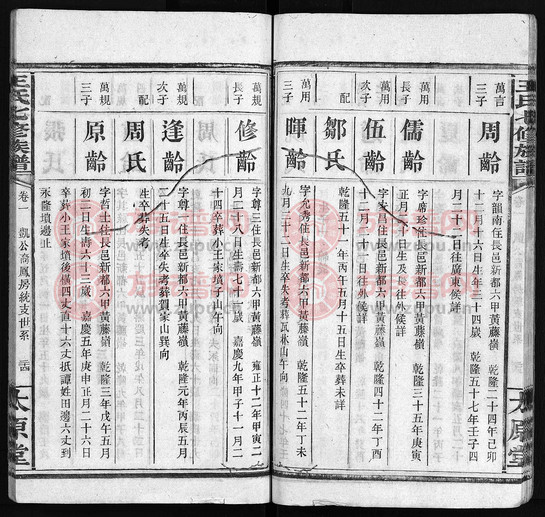 王氏七修族譜
太原堂
萬吉
三子
周齡
字韻南住長邑新都六甲黃藤嶺 乾隆二十四年己卯
十二月十六日生年三十四歲 乾隆五十七年壬子四
月二十二日往廣東候詳
萬用
長子
儒齡
字席珍住長邑新都六甲黃藤嶺 乾隆三十五年庚寅
正月二十日生及長往外候詳
萬用
次子
伍齡
字安昌住長邑新都六甲黃藤嶺 乾隆四十二年丁酉
十二月二十日往外候詳
配
鄒氏
乾隆五十一年丙午五月十五日生卒葬未詳
萬用
三子
暉齡
字允秀住長邑新都六甲黃藤嶺 乾隆五十二年丁未
九月二十二日生卒失考葬瓦林山午向
萬規
長子
修齡
字尊三住長邑新都六甲黃藤嶺 雍正十二年甲寅二
月二十八日生壽七十一歲 嘉慶九年甲子十一月二
十四卒葬小王家墳子山午向
配
周氏
生卒葬失考
萬規
次子
逢齡
字尊一住長邑新都六甲黃藤嶺 乾隆元年丙辰五月
二十五日生卒失考葬賀家山巽向
萬規
三子
原齡
字哲士住長邑新都六甲黃藤嶺 乾隆三年戊午五月
初三日生壽六十三歲 嘉慶五年庚申正月二十六日
卒葬小王家墳後橫四丈直十六丈抵譚姓田邊六丈到
永隆墳邊止
王氏七修族譜
卷一
凱公裔鳳房統支世系
太原堂